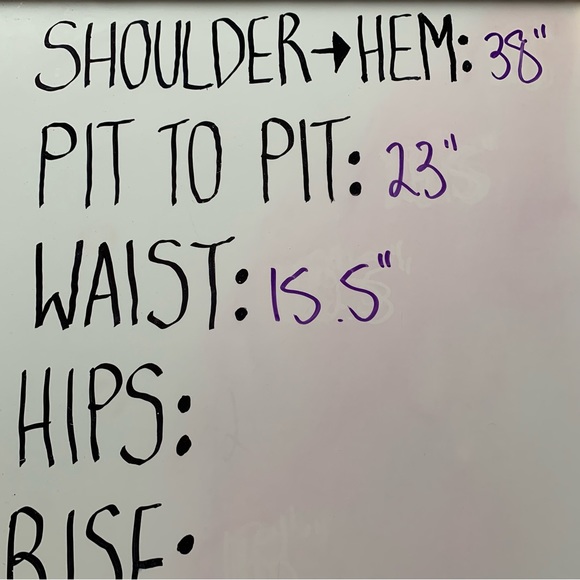 SHOULDER→HEM: 38"
PIT TO PIT: 23"
WAIST: 15.5"
HIPS:
RISE: